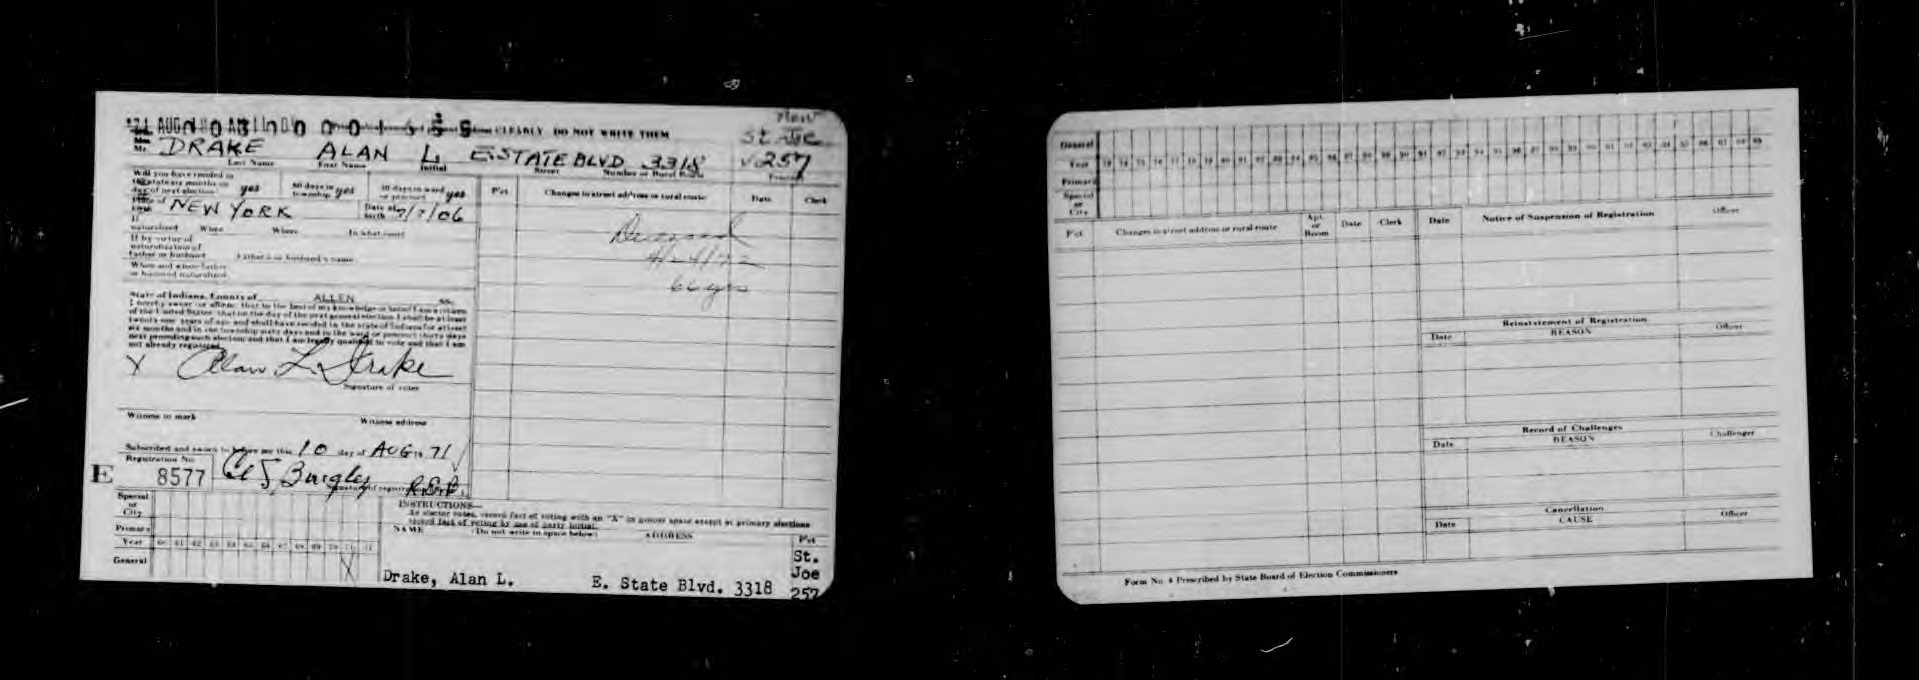 '71 AUG
CLEARLY DO NOT WRITE THEM
New
St. Joe
Mr. DRAKE ALAN L E STATE BLVD 3318 √257
Last Name First Name Initial Street Number or Rural Route Precinct
Will you have resided in
the state six months on
day of next election yes 60 days in township yes 30 days in ward or precinct yes
Pct Changes in street address or rural route Date Clerk
Place of birth NEW YORK Date of birth 7/7/06
If naturalized When Where In what court
Deceased
If by virtue of
naturalization of
father or husband Father's or husband's name
66 yrs
When and where father
or husband naturalized
State of Indiana, County of ALLEN ss.
I hereby swear (or affirm) that to the best of my knowledge or belief I am a citizen
of the United States, that on the day of the next general election I shall be at least
twenty-one years of age and shall have resided in the state of Indiana for at least
six months and in the township sixty days and in the ward or precinct thirty days
next preceding such election and that I am legally qualified to vote and that I am
not already registered
X Alan L. Drake
Signature of voter
Witness to mark Witness address
Subscribed and sworn to before me this 10 day of AUG 19 71
Registration No.
E 8577
Signature of registration
INSTRUCTIONS—
As elector votes, record fact of voting with an "X" in proper space except at primary elections
record fact of voting by use of party initial.
Special
or
City
Primary
Year 60 61 62 63 64 65 66 67 68 69 70 71 72
General X
NAME (Do not write in space below) ADDRESS Pct
Drake, Alan L. E. State Blvd. 3318 St.
Joe
257
General
Year
Primary
Special
or
City
Pct Changes in street address or rural route Apt. or Room Date Clerk
Date Notice of Suspension of Registration Officer
Reinstatement of Registration
Date REASON Officer
Record of Challenges
Date REASON Challenger
Cancellation
Date CAUSE Officer
Form No. 4 Prescribed by State Board of Election Commissioners